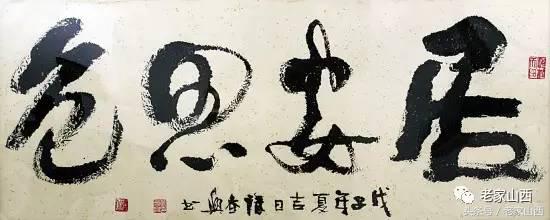 居安思危
戊子年夏吉日
老家山西
头条号/老家山西